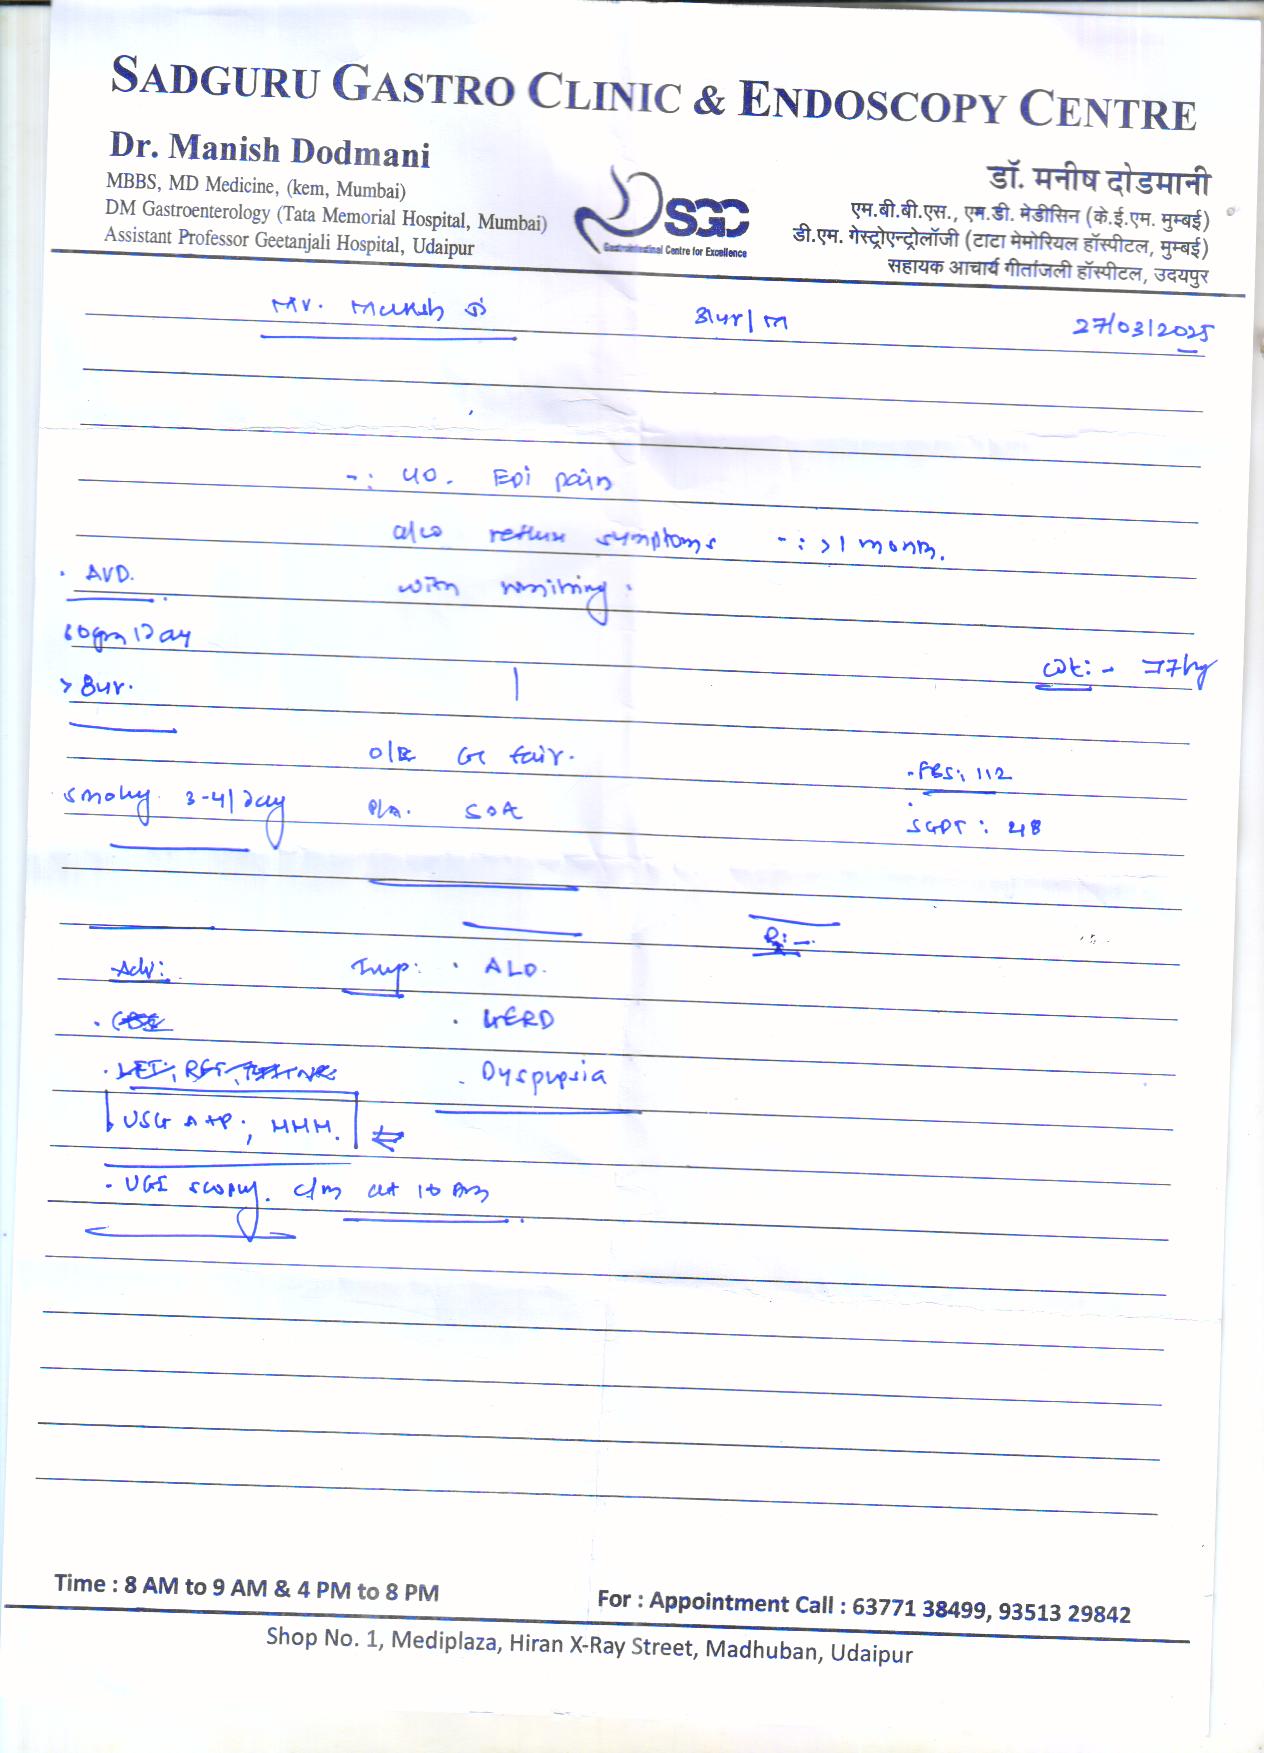 SADGURU GASTRO CLINIC & ENDOSCOPY CENTRE
Dr. Manish Dodmani
MBBS, MD Medicine, (kem, Mumbai)
DM Gastroenterology (Tata Memorial Hospital, Mumbai)
Assistant Professor Geetanjali Hospital, Udaipur
SGC
Gastrointestinal Centre for Excellence
डॉ. मनीष दोडमानी
एम.बी.बी.एस., एम.डी. मेडीसिन (के.ई.एम. मुम्बई)
डी.एम. गेस्ट्रोएन्ट्रोलॉजी (टाटा मेमोरियल हॉस्पीटल, मुम्बई)
सहायक आचार्य गीतांजली हॉस्पीटल, उदयपुर
Mr. 27/03/2025
Epi pain
also reflux symptoms -: >1 month.
. AVD. with
gm/Day Wt:-
> 8yr.
O/E GC fair. .FBS: 112
smoking 3-4/day P/A. SOft SGPT: 48
Adv: Imp: . ALD. Rx:-
. CBC . GERD
. LFT, RFT, . Dyspepsia
USG A+P;
. UGI scopy. c/m at 10 Am
Time : 8 AM to 9 AM & 4 PM to 8 PM
For : Appointment Call : 63771 38499, 93513 29842
Shop No. 1, Mediplaza, Hiran X-Ray Street, Madhuban, Udaipur